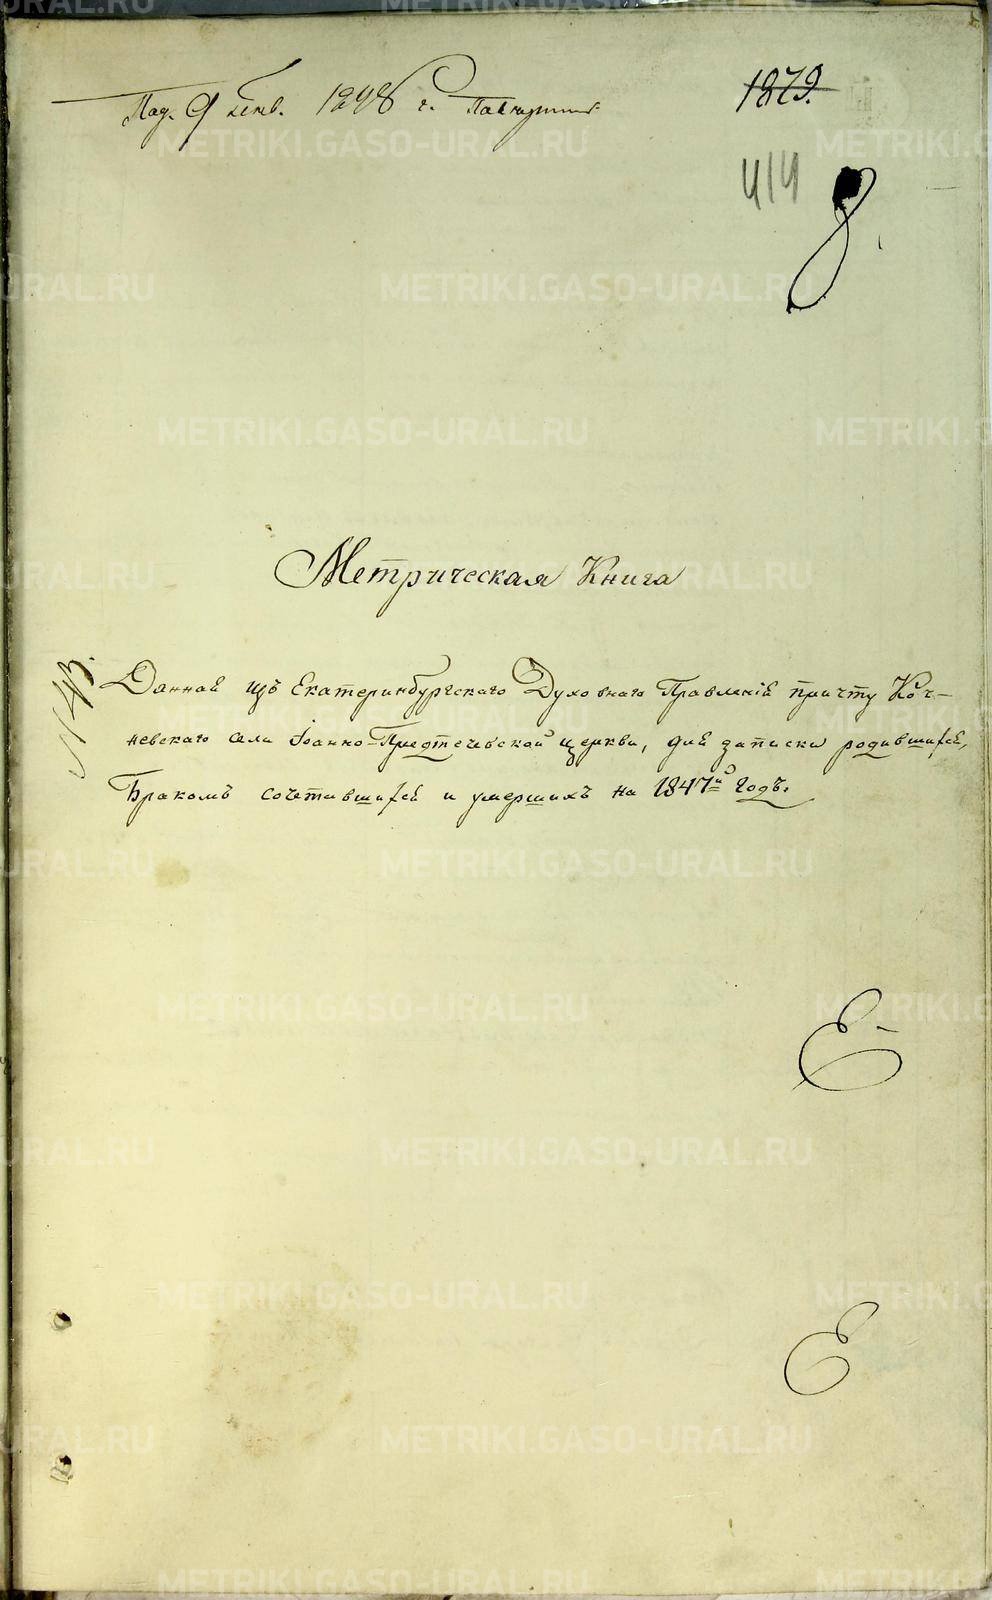 Под. 9 Генв. 1848 г.
1879.
414
Метрическая Книга
№ 43.
Данная изъ Екатеринбургскаго Духовнаго Правленія причту Коч-
невскаго села Іоанно-Предтечевской церкви, для записки родившихся,
Бракомъ сочетавшихся и умершихъ на 1847й годъ.
Е
Е
METRIKI.GASO-URAL.RU